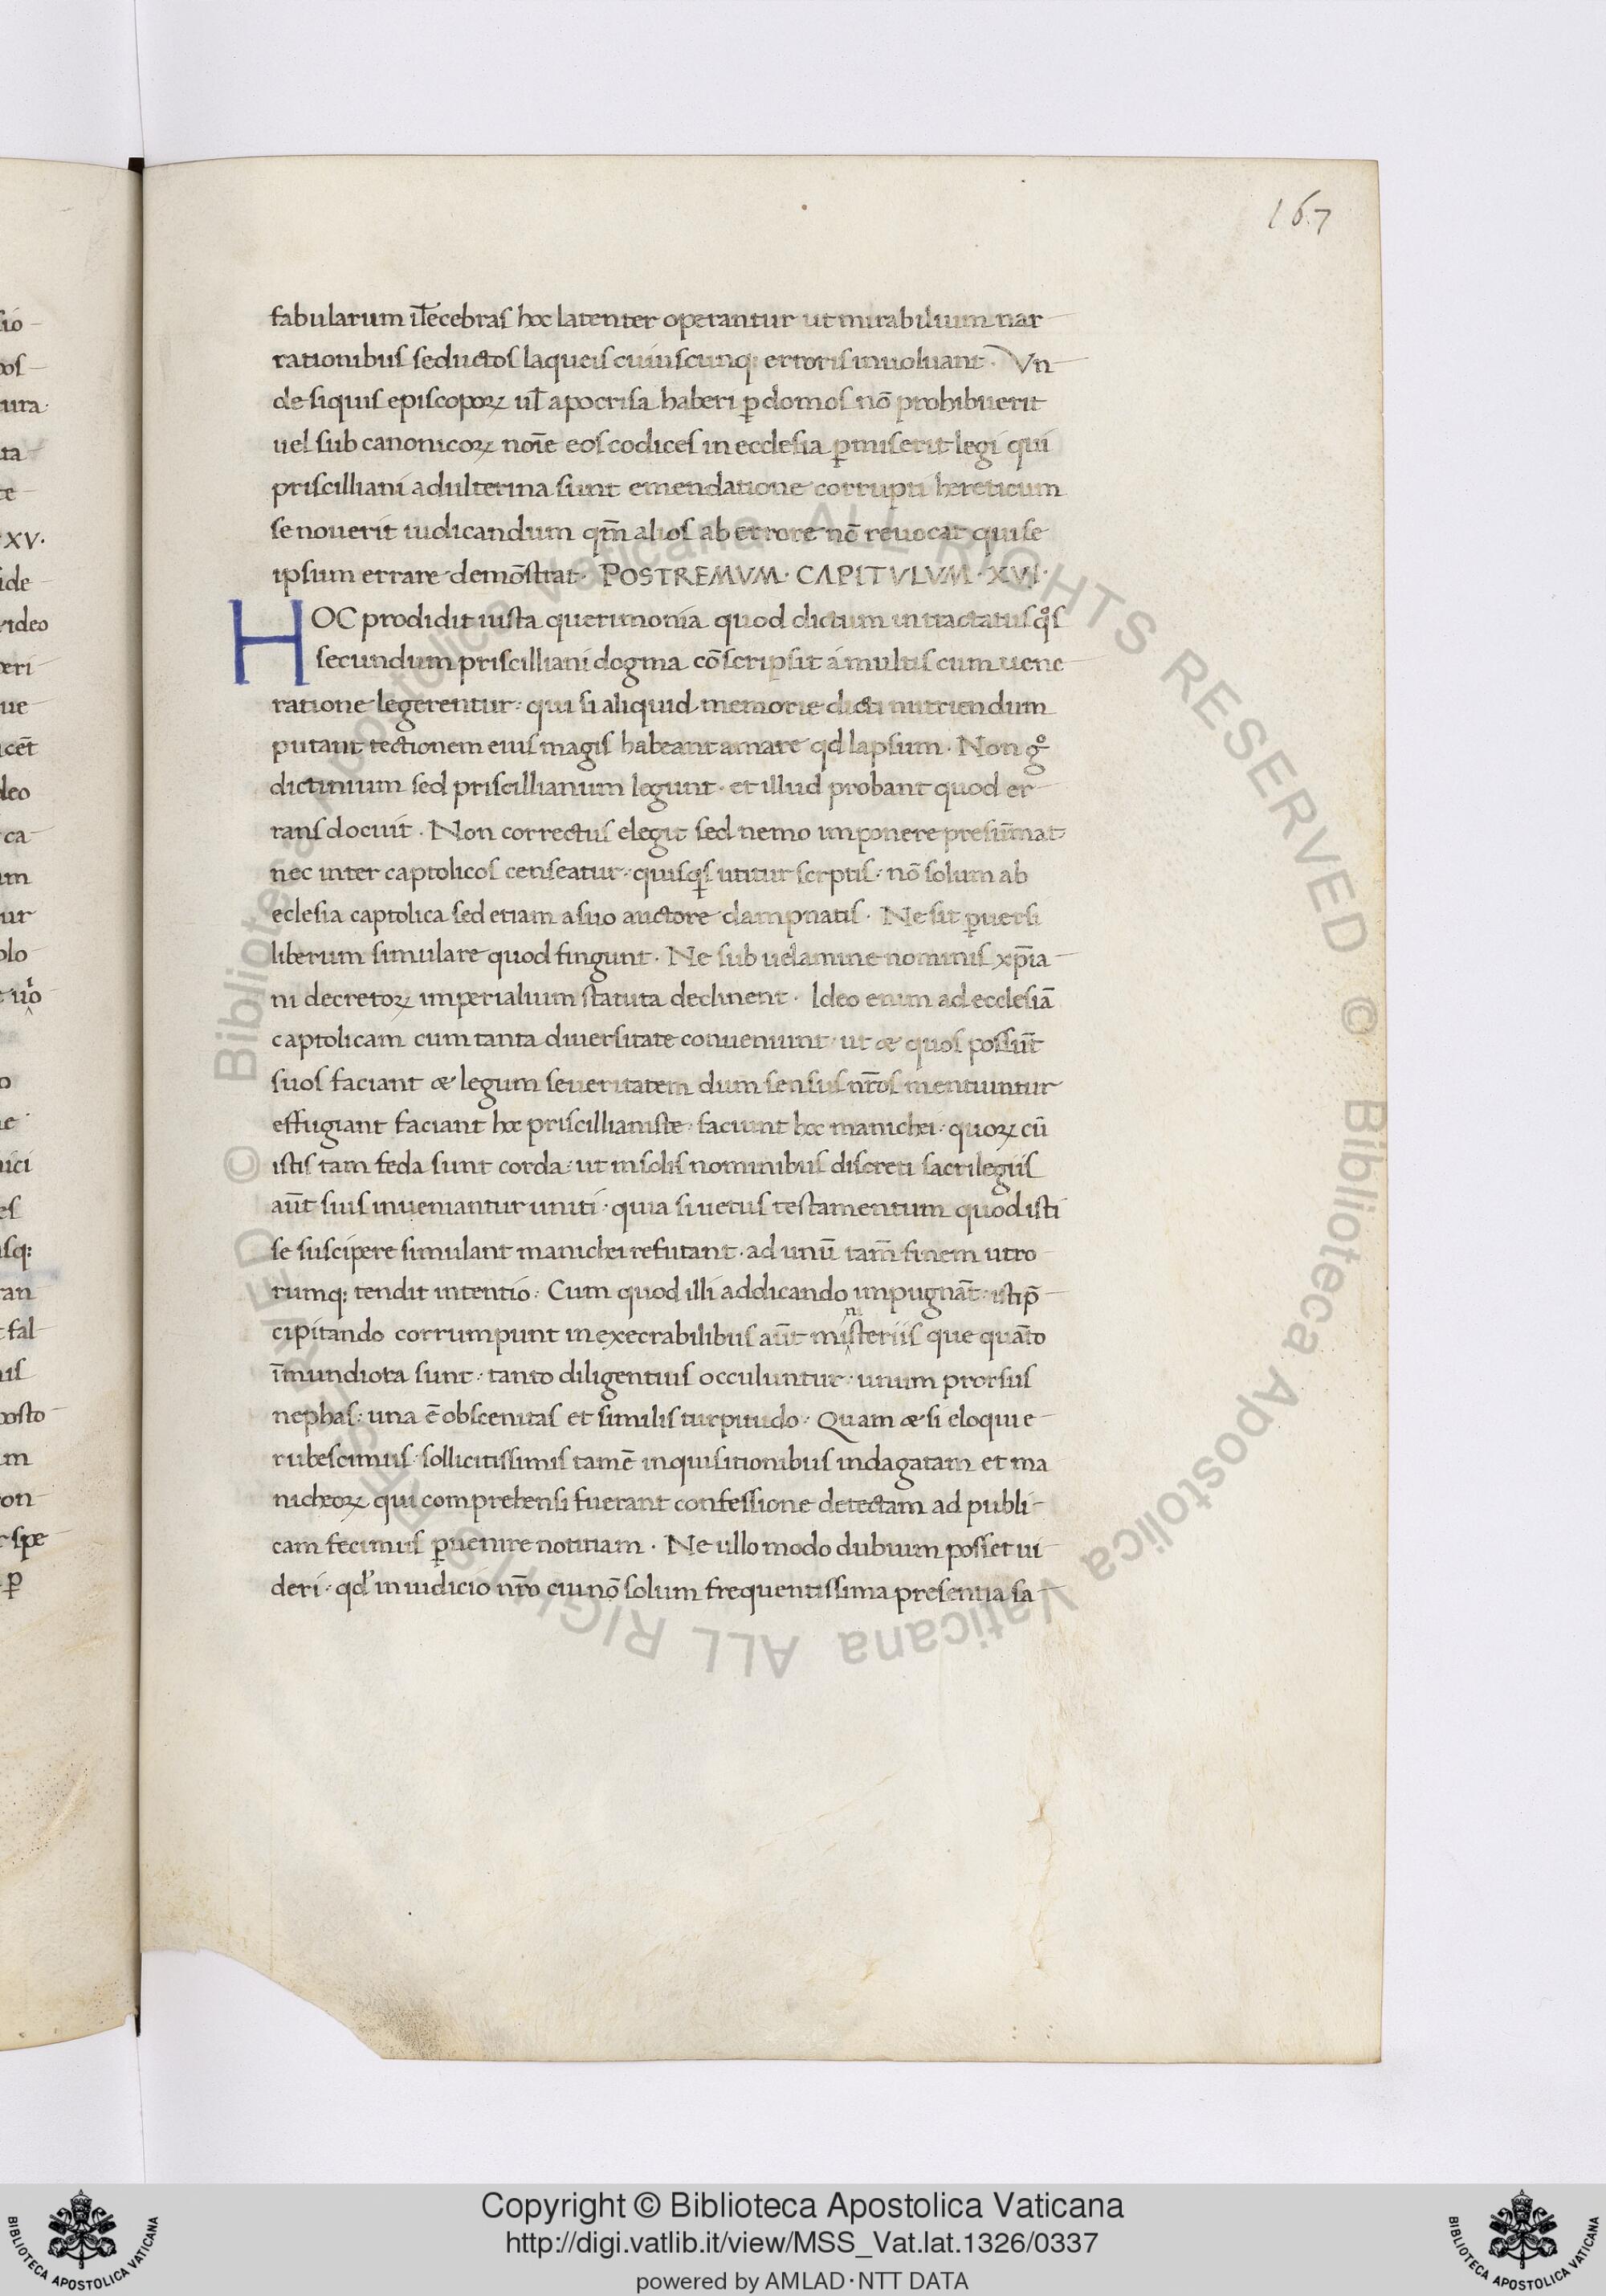 167
fabularum il̅ecebras hoc latenter operantur ut mirabilium nar
rationibus seductos laqueis cuiuscunq; erroris inuoluant · Vn
de siquis episcoporꝝ ul̅ apocrisa haberi ꝑ domos nō prohibuerit
uel sub canonicorꝝ noīe eos codices in ecclesia ꝑmiserit legi qui
priscilliani adulterina sunt emendatione corrupti hereticum
se nouerit iudicandum qm̅ alios ab errore nō reuocat qui se
ipsum errare demōstrat · POSTREMVM · CAPITVLVM · XVI ·
HOC prodidit iusta querimonia quod dictum in tractatus qͦs
secundum priscilliani dogma cōscripsit á multis cum uene
ratione legerentur : qui si aliquid memorie dicti nutriendum
putant rectionem eius magis habeant amare qd lapsum · Non gͦ
dictinium sed priscillianum legunt · et illud probant quod er
rans docuit · Non correctus elegit sed nemo imponere presūmat
nec inter captolicos censeatur : quisqs utitur scrptis : nō solum ab
eclesia captolica sed etiam a suo auctore dampnatis · Ne sit ꝑuersi
liberum simulare quod fingunt · Ne sub uelamine nominis xp̅ia
ni decretorꝝ imperialium statuta declinent · Ideo enim ad ecclesiā
captolicam cum tanta diuersitate conueniunt · ut æ quos possūt
suos faciant æ legum seueritatem dum sensus nr̅os mentiuntur
effugiant faciant hoc priscillianiste · faciunt hoc manichei · quorꝝ cū
istis tam feda sunt corda : ut in solis nominibus discreti sacrilegiis
aūt suis inueniantur uniti · quia si uetus testamentum quod isti
se suscipere simulant manichei refutant · ad unū tam̅ finem utro
rumq; tendit intentio · Cum quod illi addicando impugnāt : isti p̅
cipitando corrumpunt in execrabilibus aūt miⁿsteriis que quāto
īmundiora sunt · tanto diligentius occuluntur · unum prorsus
nephas : una ē obscenitas et similis turpitudo · Quam æ si eloqui e
rubescimus · sollicitissimis tamē inquisitionibus indagatam et ma
nicheorꝝ qui comprehensi fuerant confessione detectam ad publi
cam fecimus ꝑuenire notitiam · Ne ullo modo dubium posset ui
deri · qd' in iudicio nr̅o cui nō solum frequentissima presentia sa
Copyright © Biblioteca Apostolica Vaticana
http://digi.vatlib.it/view/MSS_Vat.lat.1326/0337
powered by AMLAD·NTT DATA